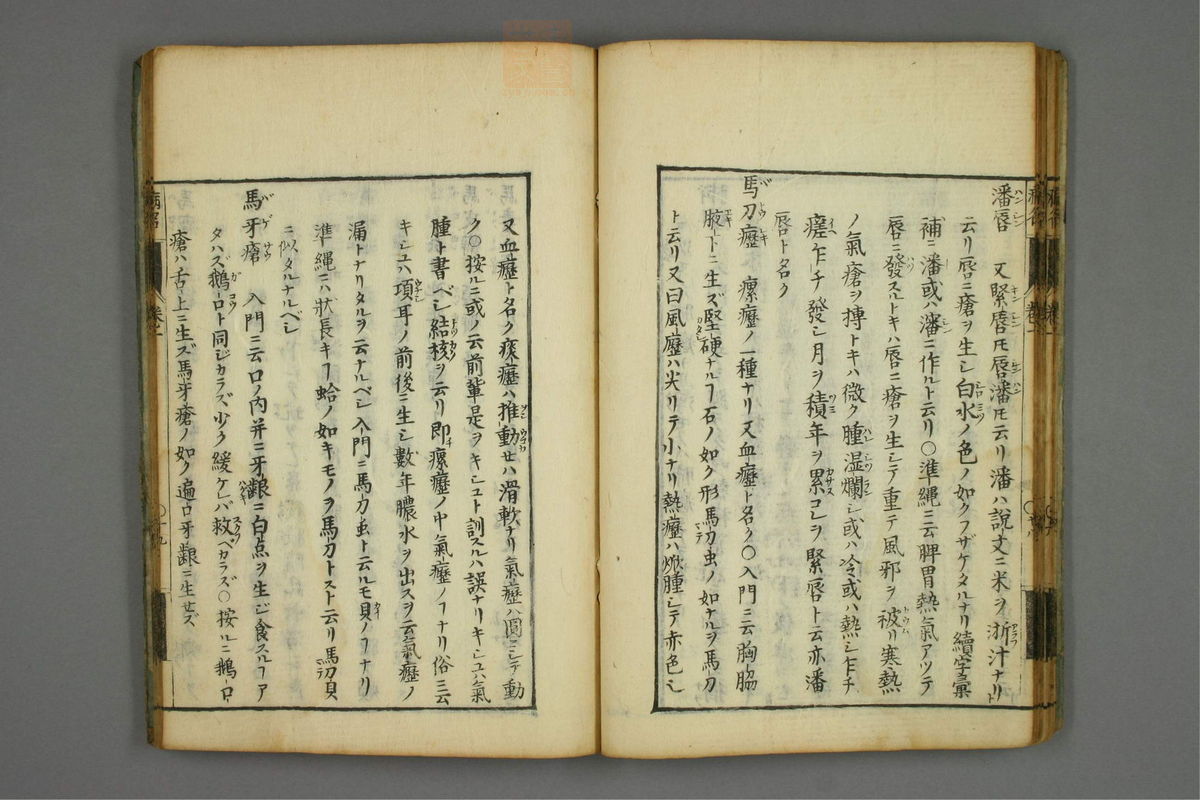 潘唇 又緊唇トモ唇潘トモ云リ潘ハ說文ニ米ヲ淅汁ナリト
云リ唇ニ瘡ヲ生シ白水ノ色ノ如クフザケタルナリ續字彙
補ニ潘或ハ瀋ニ作ルト云リ〇準繩ニ云脾胃熱氣アツテ
唇ニ發スルトキハ唇ニ瘡ヲ生シテ重テ風邪ヲ被リ寒熱
ノ氣瘡ヲ搏トキハ微ク腫湿爛シ或ハ冷或ハ熱シ乍チ
瘥乍チ發シ月ヲ積年ヲ累コレヲ緊唇ト云亦潘
唇ト名ク
馬刀癧 瘰癧ノ一種ナリ又血癧ト名ク〇入門ニ云胸脇
腋下ニ生ズ堅硬ナルヿ石ノ如ク形馬刀虫ノ如ナルヲ馬刀
ト云リ又曰風癧ハ尖リテ小ナリ熱癧ハ焮腫シテ赤色シ
又血癧ト名ク痰癧ハ推動セハ滑軟ナリ氣癧ハ圓ニシテ動
ク〇按ルニ或ノ云前輩是ヲキシユト訓スルハ誤ケリキシユハ氣
腫ト書ベシ結核ヲ云リ即瘰癧ノ中氣癧ノヿナリ俗ニ云
キシユハ項耳ノ前後ニ生シ數年膿水ヲ出スヲ云氣癧ノ
漏トナリタルヲ云ナルベシ入門ニ馬刀虫ト云ルモ貝ノヿナリ
準繩ニハ狀長キヿ蛤ノ如キモノヲ馬刀トスト云リ馬刀貝
ニ似タルナルベシ
馬牙瘡 入門ニ云口ノ內并ニ牙齦ニ白点ヲ生ジ食スルヿア
タハズ鵝口ト同ジカラズ少ク緩ケレバ救ベカラズ〇按ルニ鵝口
瘡ハ舌上ニ生ズ馬牙瘡ノ如ク遍口牙齦ニ生セズ